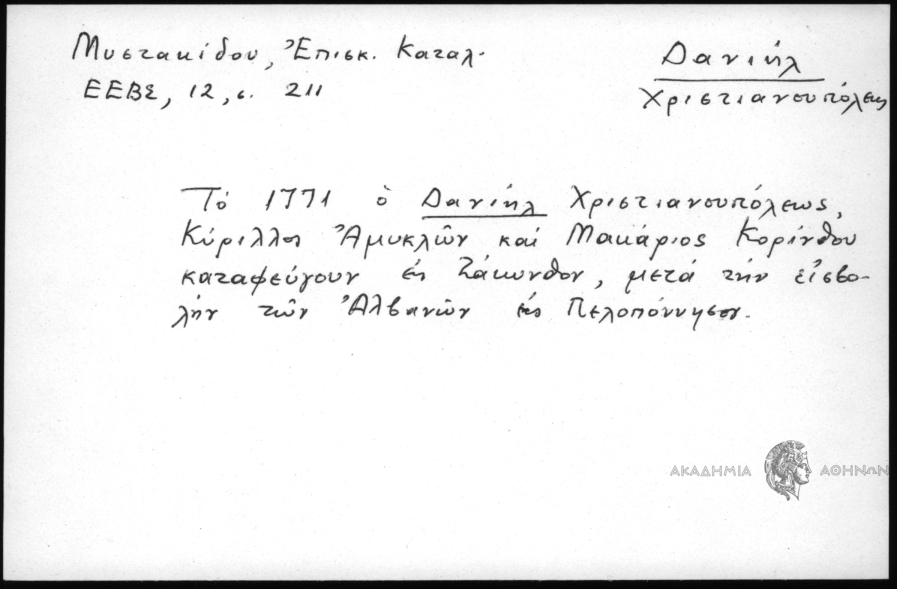 Μυστακίδου, Ἐπισκ. Καταλ.
ΕΕΒΣ, 12, σ. 211
Δανιήλ
Χριστιανουπόλεως
Τό 1771 ὁ Δανιήλ Χριστιανουπόλεως,
Κύριλλος Ἀμυκλῶν καί Μακάριος Κορίνθου
καταφεύγουν εἰς Ζάκυνθον, μετά τήν εἰσβο-
λήν τῶν Ἀλβανῶν εἰς Πελοπόννησον.
ΑΚΑΔΗΜΙΑ ΑΘΗΝΩΝ